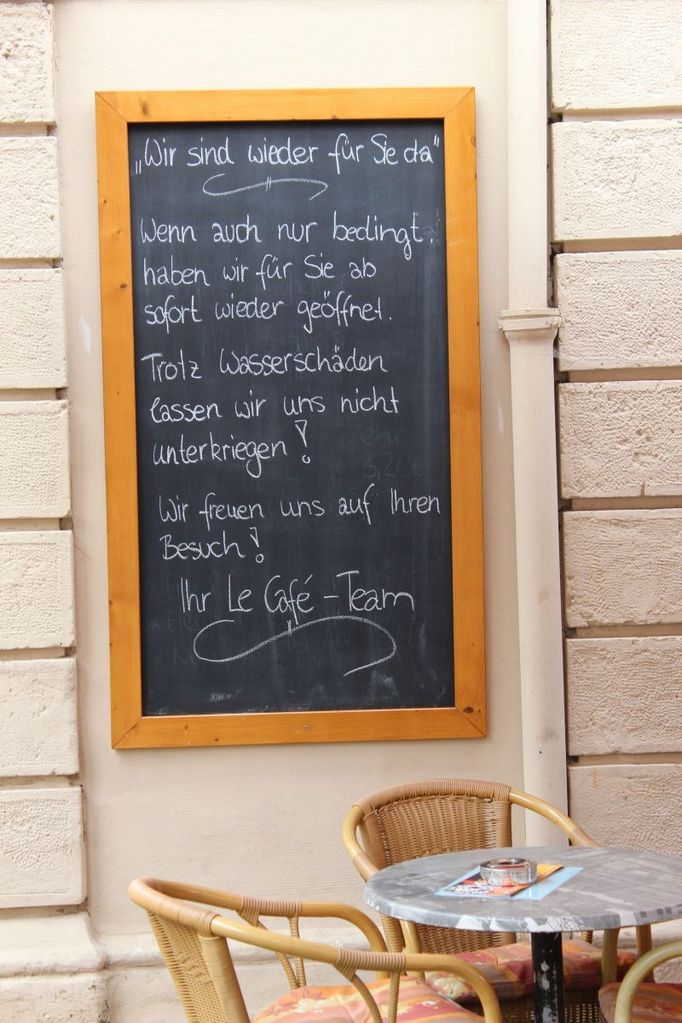 „Wir sind wieder für Sie da“
Wenn auch nur bedingt,
haben wir für Sie ab
sofort wieder geöffnet.
Trotz Wasserschäden
lassen wir uns nicht
unterkriegen!
Wir freuen uns auf Ihren
Besuch!
Ihr Le Café - Team